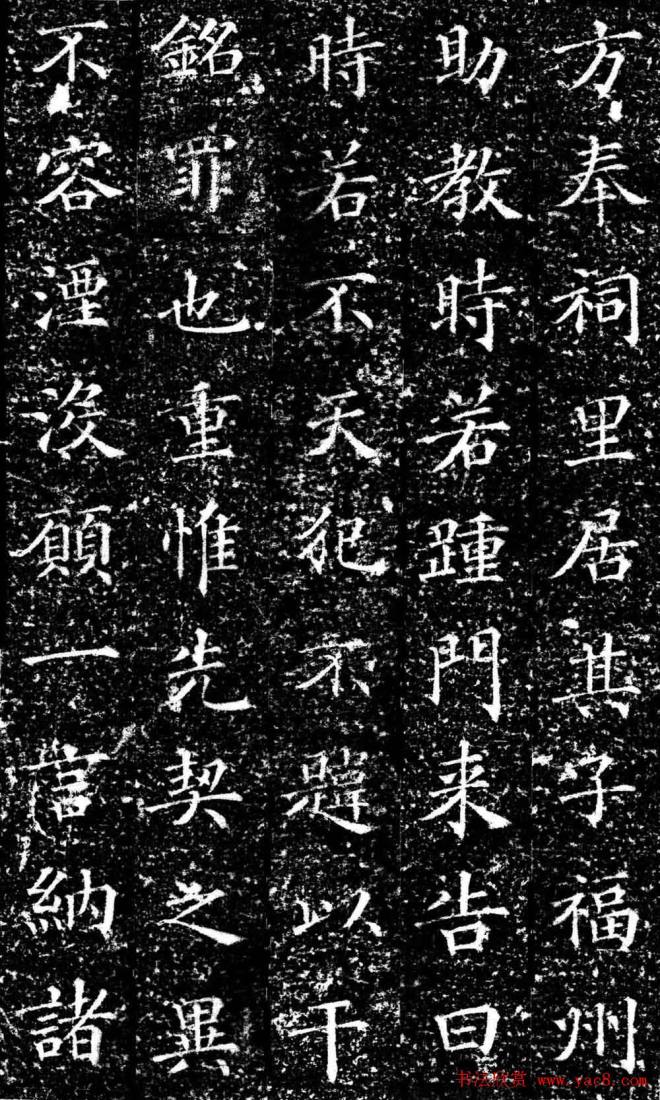 方奉祠里居其子福州
助教時若踵門来告曰
時若不天犯不韙以干
銘罪也重惟先契之異
不容湮没願一言納諸
书法欣赏 www.yac8.com